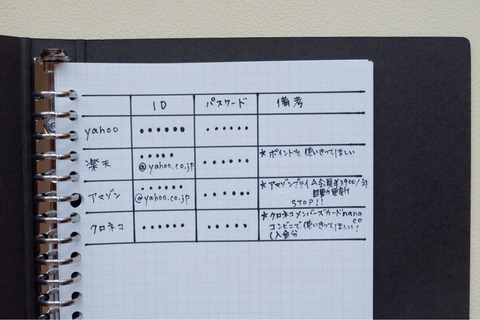 ID パスワード 備考
yahoo •••••• ••••••
楽天 ••••• @yahoo.co.jp •••••• *ポイントを使いきってほしい
アマゾン •••••• @yahoo.co.jp •••••• *アマゾンプライム会員¥3900/年
自動更新
STOP!!
クロネコ •••••• •••••• *クロネコメンバーズカードnana
co
コンビニで使いきってほしい!
(入金分